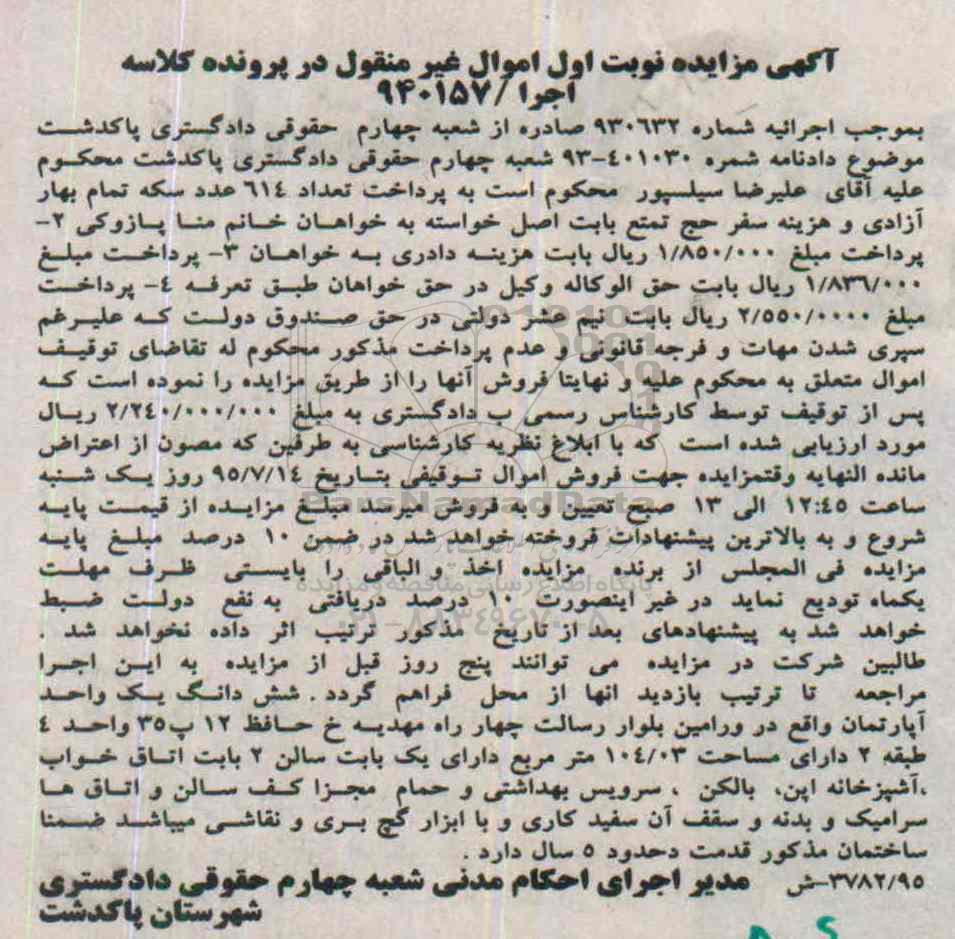 آگهی مزایده نوبت اول اموال غیر منقول در پرونده کلاسه
اجرا /۹۴۰۱۵۷
بموجب اجرائیه شماره ۹۳۰۶۳۲ صادره از شعبه چهارم حقوقی دادگستری پاکدشت
موضوع دادنامه شمره ۴۰۱۰۳۰-۹۳ شعبه چهارم حقوقی دادگستری پاکدشت محکوم
علیه آقای علیرضا سیلسپور محکوم است به پرداخت تعداد ۶۱٤ عدد سکه تمام بهار
آزادی و هزینه سفر حج تمتع بابت اصل خواسته به خواهان خانم منا پازوکی ۲-
پرداخت مبلغ ۱/۸۵۰/۰۰۰ ریال بابت هزینه دادری به خواهان ۳- پرداخت مبلغ
۱/۸۳٦/۰۰۰ ریال بابت حق الوکاله وکیل در حق خواهان طبق تعرفه ٤- پرداخت
مبلغ ۲/۵۵۰/۰۰۰۰ ریال بابت نیم عشر دولتی در حق صندوق دولت که علیرغم
سپری شدن مهات و فرجه قانونی و عدم پرداخت مذکور محکوم له تقاضای توقیف
اموال متعلق به محکوم علیه و نهایتا فروش آنها را از طریق مزایده را نموده است که
پس از توقیف توسط کارشناس رسمی ب دادگستری به مبلغ ۲/۲٤۰/۰۰۰/۰۰۰ ریال
مورد ارزیابی شده است که با ابلاغ نظریه کارشناسی به طرفین که مصون از اعتراض
مانده النهایه وقتمزایده جهت فروش اموال توقیفی بتاریخ ۹۵/۷/۱٤ روز یک شنبه
ساعت ۱۲:٤۵ الی ۱۳ صبح تعیین و به فروش میرسد مبلغ مزایده از قیمت پایه
شروع و به بالاترین پیشنهادات فروخته خواهد شد در ضمن ۱۰ درصد مبلغ پایه
مزایده فی المجلس از برنده مزایده اخذ و الباقی را بایستی ظرف مهلت
یکماه تودیع نماید در غیر اینصورت ۱۰ درصد دریافتی به نفع دولت ضبط
خواهد شد به پیشنهادهای بعد از تاریخ مذکور ترتیب اثر داده نخواهد شد .
طالبین شرکت در مزایده می توانند پنج روز قبل از مزایده به این اجرا
مراجعه تا ترتیب بازدید انها از محل فراهم گردد . شش دانگ یک واحد
آپارتمان واقع در ورامین بلوار رسالت چهار راه مهدیه خ حافظ ۱۲ پ۳۵ واحد ٤
طبقه ۲ دارای مساحت ۱۰٤/۰۳ متر مربع دارای یک بابت سالن ۲ بابت اتاق خواب
،آشپزخانه اپن، بالکن ، سرویس بهداشتی و حمام مجزا کف سالن و اتاق ها
سرامیک و بدنه و سقف آن سفید کاری و با ابزار گچ بری و نقاشی میباشد ضمنا
ساختمان مذکور قدمت دحدود ۵ سال دارد .
۳۷۸۲/۹۵-ش مدیر اجرای احکام مدنی شعبه چهارم حقوقی دادگستری
شهرستان پاکدشت
ParsNamadData
پایگاه اطلاع رسانی مناقصه و مزایده
۰۲۱-۸۸۳٤۹۶۷۰-۵